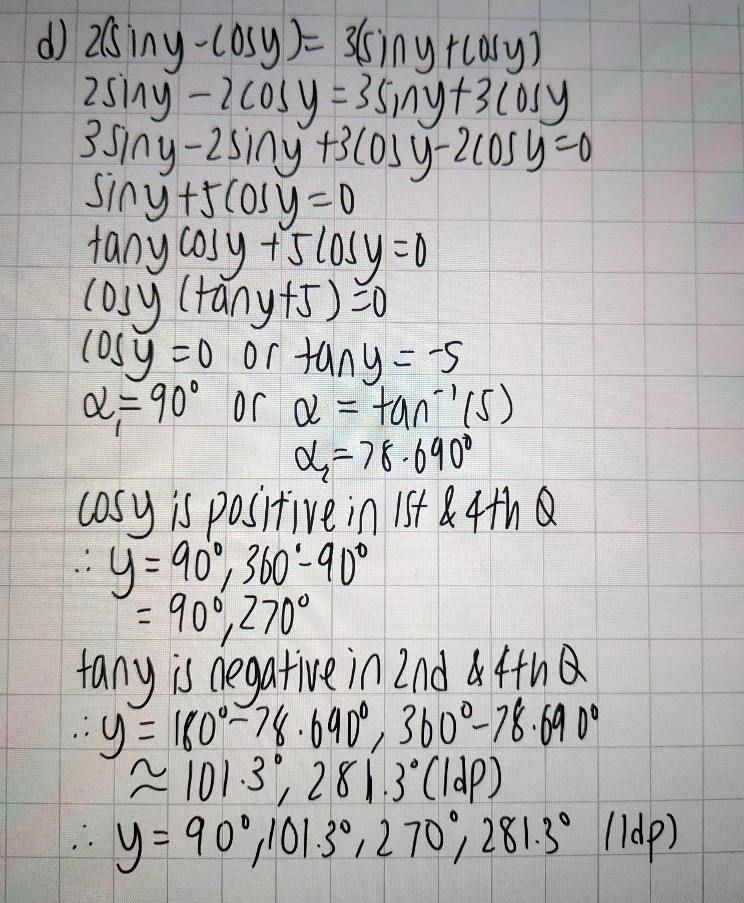 d) 2(siny-cosy)= 3(siny+cosy)
2siny - 2cosy = 3siny+3cosy
3siny-2siny +3cosy-2cosy=0
siny+5cosy=0
tany cosy +5cosy=0
cosy (tany+5)=0
cosy =0 or tany = -5
α₁=90° or α = tan⁻¹(5)
α₂=78.690°
cosy is positive in 1st & 4th Q
∴ y = 90°, 360°-90°
= 90°, 270°
tany is negative in 2nd & 4th Q
∴ y = 180°-78.690°, 360°-78.690°
≈ 101.3°, 281.3° (1dp)
∴ y = 90°, 101.3°, 270°, 281.3° (1dp)